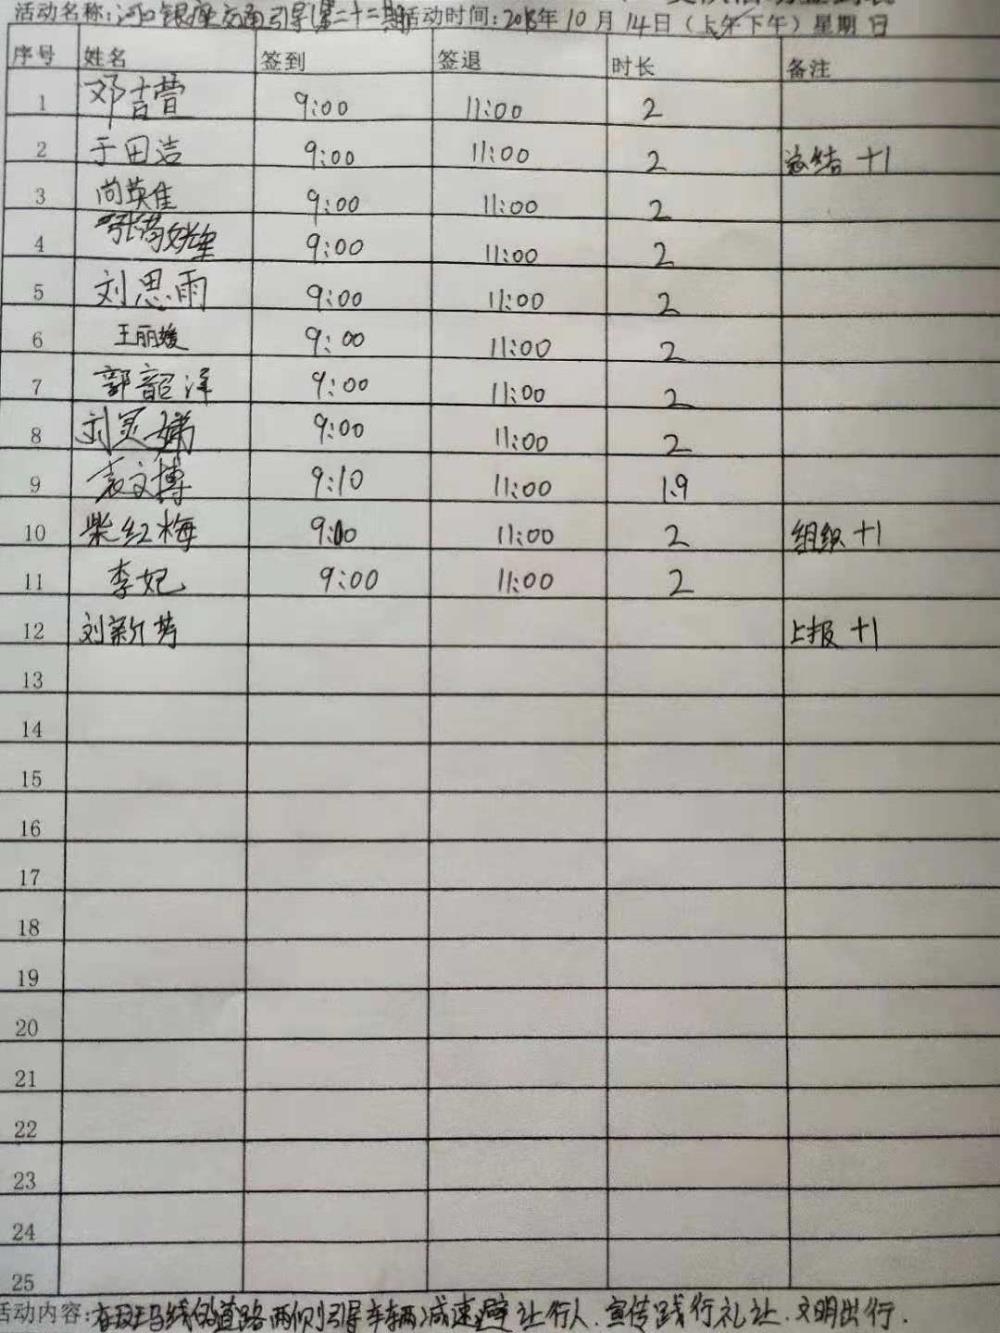 活动名称：河口银座交通引导（第二十二期 活动时间：2018年10月14日（上午下午）星期日
序号 姓名 签到 签退 时长 备注
1 邓吉萱 9:00 11:00 2
2 于田洁 9:00 11:00 2 总结 +1
3 尚英佳 9:00 11:00 2
4 9:00 11:00 2
5 刘思雨 9:00 11:00 2
6 王丽媛 9:00 11:00 2
7 郭韶泽 9:00 11:00 2
8 刘灵娣 9:00 11:00 2
9 袁文博 9:10 11:00 1.9
10 柴红梅 9:00 11:00 2 组织 +1
11 李妃 9:00 11:00 2
12 刘新芳 上报 +1
13
14
15
16
17
18
19
20
21
22
23
24
25
活动内容：在斑马线的道路两侧引导车辆减速避让行人，宣传践行礼让，文明出行．